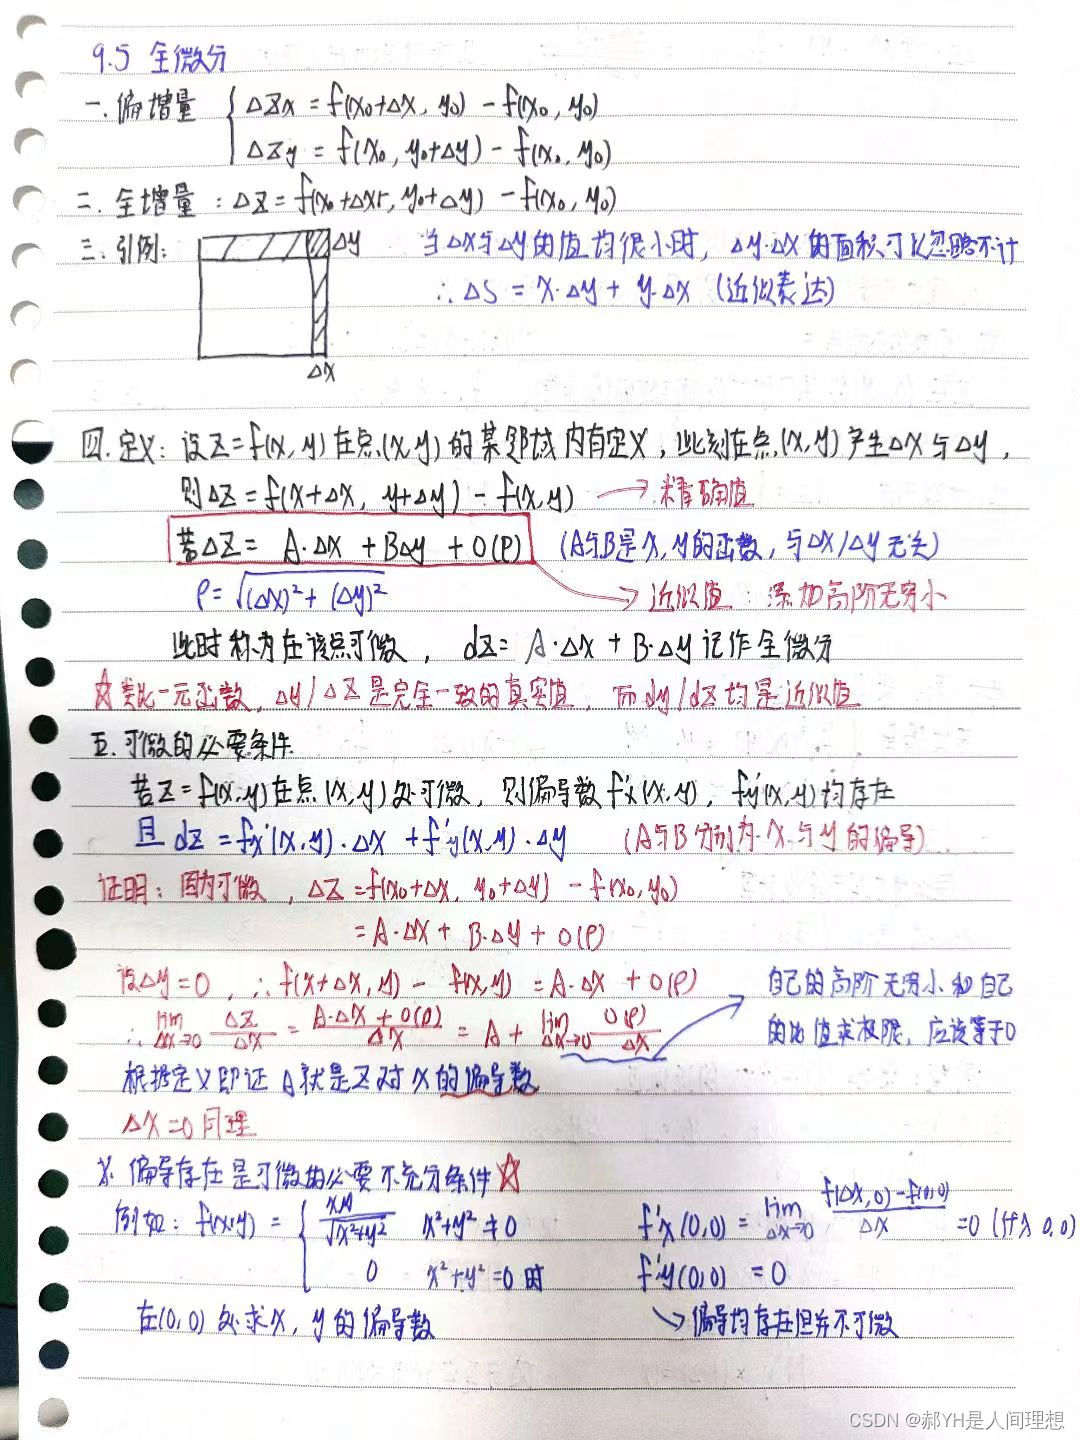 9.5 全微分
一.偏增量 { ΔZx = f(x₀+Δx, y₀) - f(x₀, y₀)
ΔZy = f(x₀, y₀+Δy) - f(x₀, y₀)
二. 全增量：ΔZ = f(x₀+Δx, y₀+Δy) - f(x₀, y₀)
三.引例： Δy 当Δx与Δy的值均很小时，Δy·Δx的面积可以忽略不计
∴ΔS = x·Δy + y·Δx (近似表达)
Δx
四.定义：设Z=f(x,y)在点(x,y)的某邻域内有定义，此刻在点(x,y)产生Δx与Δy，
则ΔZ = f(x+Δx, y+Δy) - f(x,y) → 精确值
若ΔZ = A·Δx + BΔy + o(ρ) (A与B是x,y的函数，与Δx/Δy无关)
ρ = √(Δx)²+(Δy)² → 近似值：添加高阶无穷小
此时称为在该点可微，dz = A·Δx + B·Δy 记作全微分
☆类比一元函数，Δy/ΔZ是完全一致的真实值，而dy/dz均是近似值
五.可微的必要条件
若Z=f(x,y)在点(x,y)处可微，则偏导数f'x(x,y)，fy'(x,y)均存在
且 dz = fx'(x,y)·Δx + f'y(x,y)·Δy (A与B分别为x与y的偏导)
证明：因为可微，ΔZ = f(x₀+Δx, y₀+Δy) - f(x₀,y₀)
= A·Δx + B·Δy + o(ρ)
设Δy=0，∴f(x+Δx,y) - f(x,y) = A·Δx + o(ρ) 自己的高阶无穷小和自己
∴ lim Δx→0 ΔZ/Δx = A·Δx+o(ρ)/Δx = A + lim Δx→0 o(ρ)/Δx 的比值求极限，应该等于0
根据定义即证 A就是Z对x的偏导数
Δx=0同理
偏导存在是可微的必要不充分条件☆
例如：f(x,y) = { xy/√x²+y² x²+y²≠0 f'x(0,0) = lim Δx→0 f(Δx,0)-f(0,0)/Δx =0 (代入0,0)
0 x²+y²=0时 f'y(0,0) = 0
在(0,0)处求x,y的偏导数 ↘偏导均存在但并不可微
CSDN @郝YH是人间理想